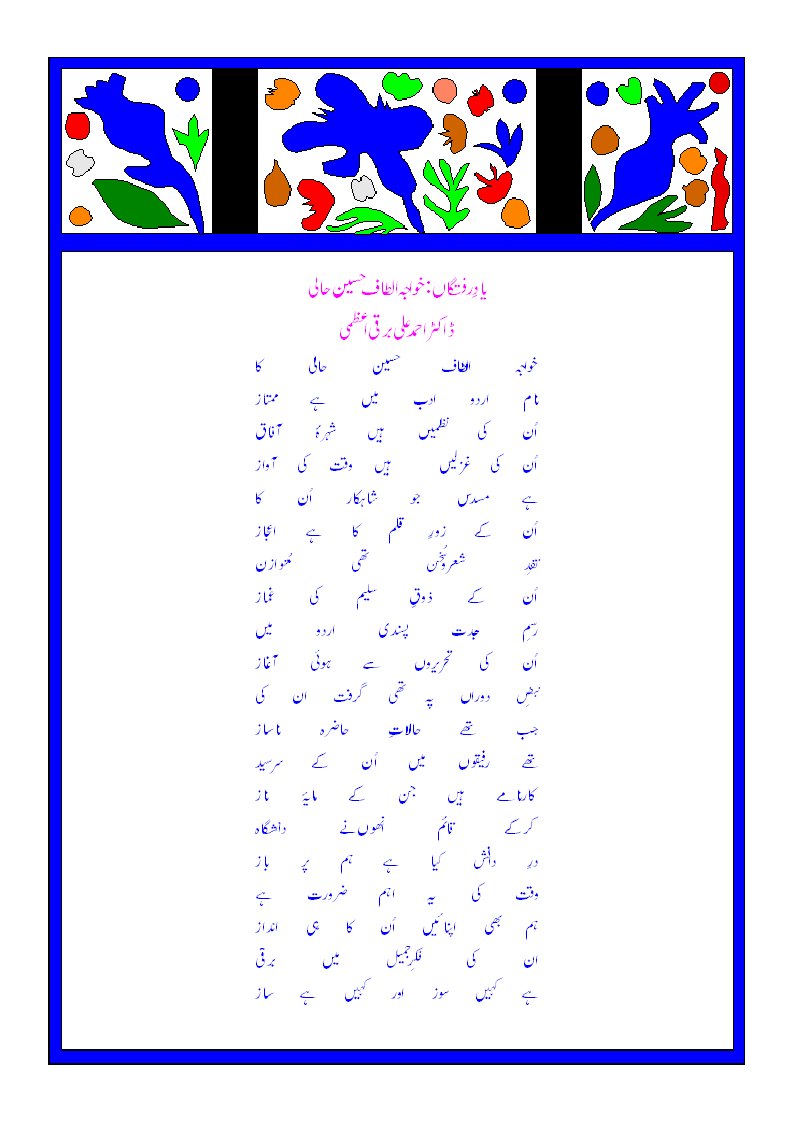 یادِ رفتگاں: خواجہ الطاف حسین حالی
ڈاکٹر احمد علی برقی اعظمی
خواجہ الطاف حسین حالی کا
نام اردو ادب میں ہے ممتاز
اُن کی نظمیں ہیں شہرۂ آفاق
اُن کی غزلیں ہیں وقت کی آواز
ہے مسدس جو شاہکار اُن کا
اُن کے زورِ قلم کا ہے اعجاز
نقدِ شعر و سُخن تھی مُتوازن
اُن کے ذوقِ سلیم کی غماز
رسمِ جدت پسندی اردو میں
اُن کی تحریروں سے ہوئی آغاز
نبضِ دوراں پہ تھی گرفت ان کی
جب تھے حالاتِ حاضرہ ناساز
تھے رفیقوں میں اُن کے سرسید
کارنامے ہیں جن کے مایۂ ناز
کرکے قائم انھوں نے دانشگاہ
درِ دانش کیا ہے ہم پر باز
وقت کی یہ اہم ضرورت ہے
ہم بھی اپنائیں اُن کا ہی انداز
ان کی فکرِ جمیل میں برقی
ہے کہیں سوز اور کہیں ہے ساز